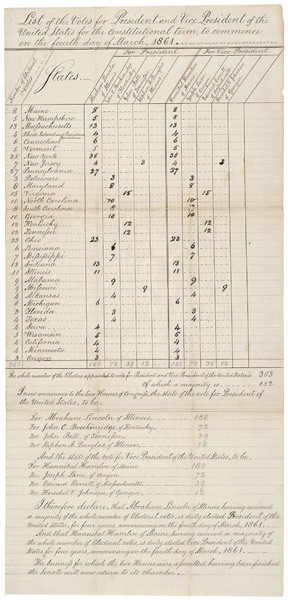 List of the Votes for President and Vice President of the
United States for the constitutional term to commence
on the fourth day of March, 1861.
For President. For Vice President.
States.
8 Maine 8 8
5 New Hampshire 5 5
13 Massachusetts 13 13
4 Rhode Island 4 4
6 Connecticut 6 6
5 Vermont 5 5
35 New York 35 35
7 New Jersey 4 3 4 3
27 Pennsylvania 27 27
3 Delaware 3 3
8 Maryland 8 8
15 Virginia 15 15
10 North Carolina 10 10
8 South Carolina 8 8
10 Georgia 10 10
12 Kentucky 12 12
12 Tennessee 12 12
23 Ohio 23 23
6 Louisiana 6 6
7 Mississippi 7 7
13 Indiana 13 13
11 Illinois 11 11
9 Alabama 9 9
9 Missouri 9 9
4 Arkansas 4 4
6 Michigan 6 6
3 Florida 3 3
4 Texas 4 4
4 Iowa 4 4
5 Wisconsin 5 5
4 California 4 4
4 Minnesota 4 4
3 Oregon 3 3
303 180 72 39 12 180 72 39 12
The whole number of the Electors appointed to vote for President and Vice President of the United States is 303
of which a majority is 152
I now announce to the two Houses of Congress, the state of the vote for President of
the United States, to be,
For Abraham Lincoln of Illinois 180
For John C. Breckinridge of Kentucky 72
For John Bell of Tennessee 39
For Stephen A. Douglas of Illinois 12
And the state of the vote for Vice President of the United States, to be,
For Hannibal Hamlin of Maine 180
For Joseph Lane of Oregon 72
For Edward Everett of Massachusetts 39
For Herschel V. Johnson of Georgia 12
I therefore declare, that Abraham Lincoln of Illinois, having received
a majority of the whole number of Electoral votes, is duly elected President of the
United States, for four years, commencing on the fourth day of March, 1861.
And that Hannibal Hamlin of Maine, having received a majority of
the whole number of Electoral votes, is duly elected Vice President of the United
States for four years, commencing on the fourth day of March, 1861.
The business for which the two Houses were assembled having been finished
the Senate will now return to its chamber.